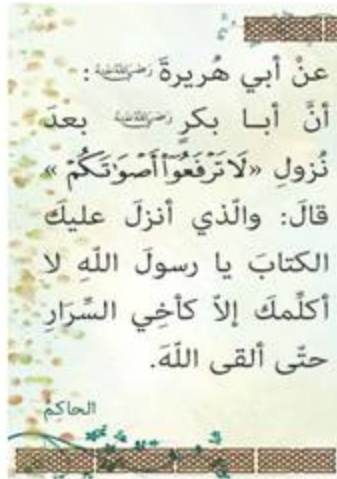 عنْ أبي هُريرةَ رَضِيَ اللَّهُ عَنْهُ :
أنَّ أبــا بكرٍ رَضِيَ اللَّهُ عَنْهُ بعدَ
نُزولِ «لَا تَرْفَعُوٓا۟ أَصْوَٰتَكُمْ »
قالَ: والّذي أنزلَ عليكَ
الكتابَ يا رسولَ اللّهِ لا
أكلِّمكَ إلاّ كأخِي السِّرَارِ
حتّى ألقى اللّهَ.
الحاكم